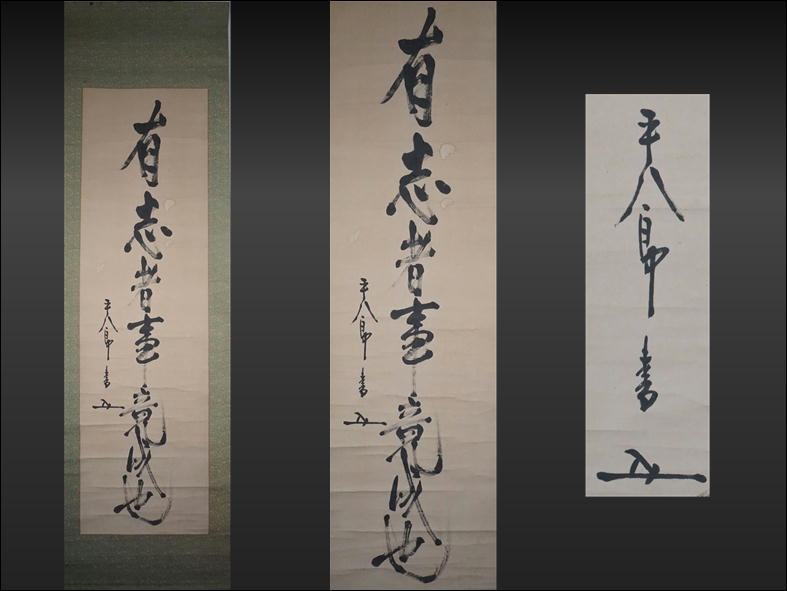 有志者事竟成也
平八郎書
有志者事竟成也
平八郎書
平八郎書